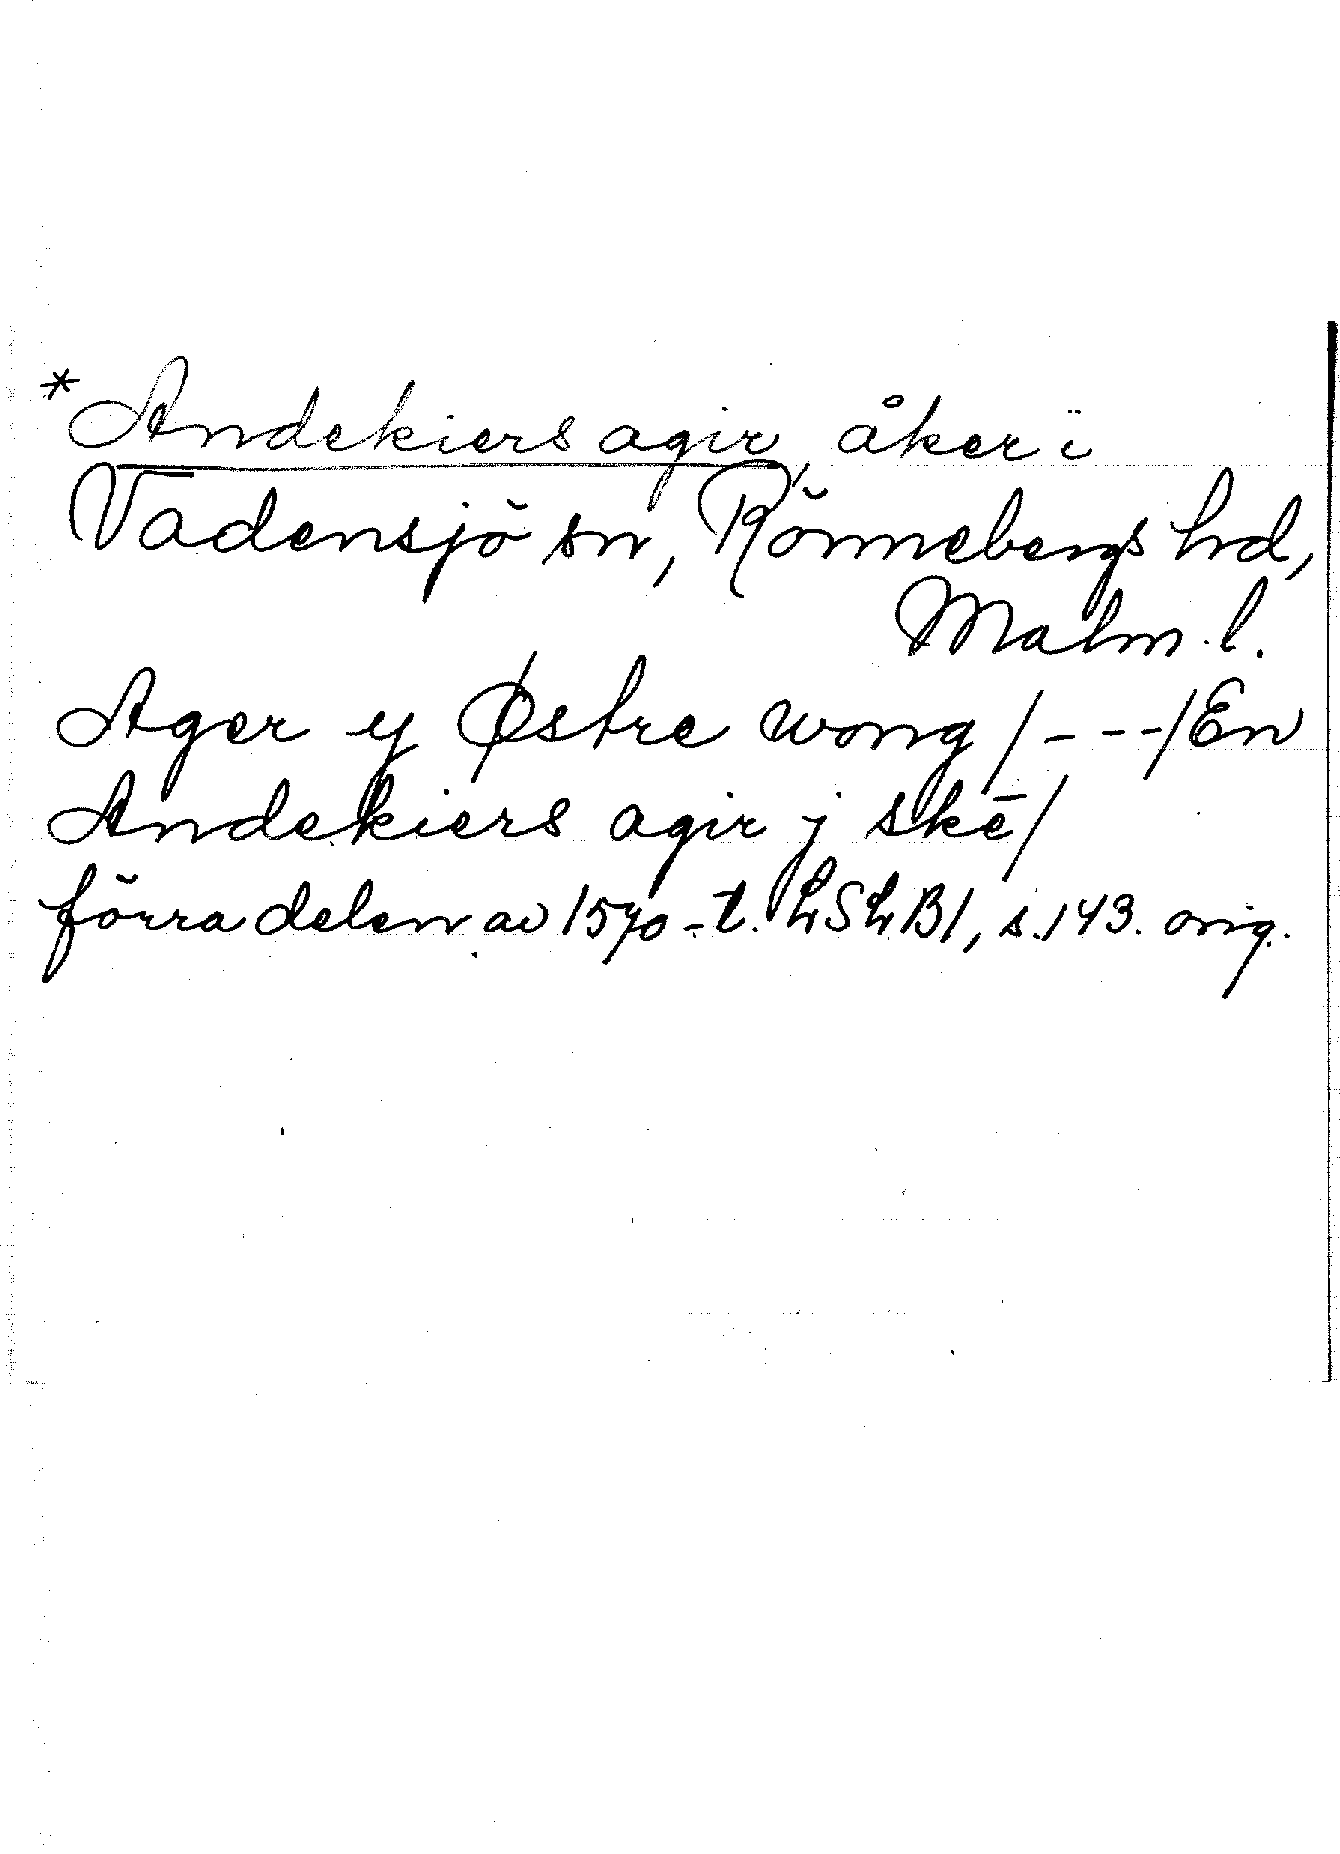 *Andekiers agir, åker i
Vadensjö sn, Rönnebergs hrd,
Malm. l.
Ager y Østre wong /---/ En
Andekiers agir j skē/
förra delen av 1570-t. LSLB1, s.143. orig.